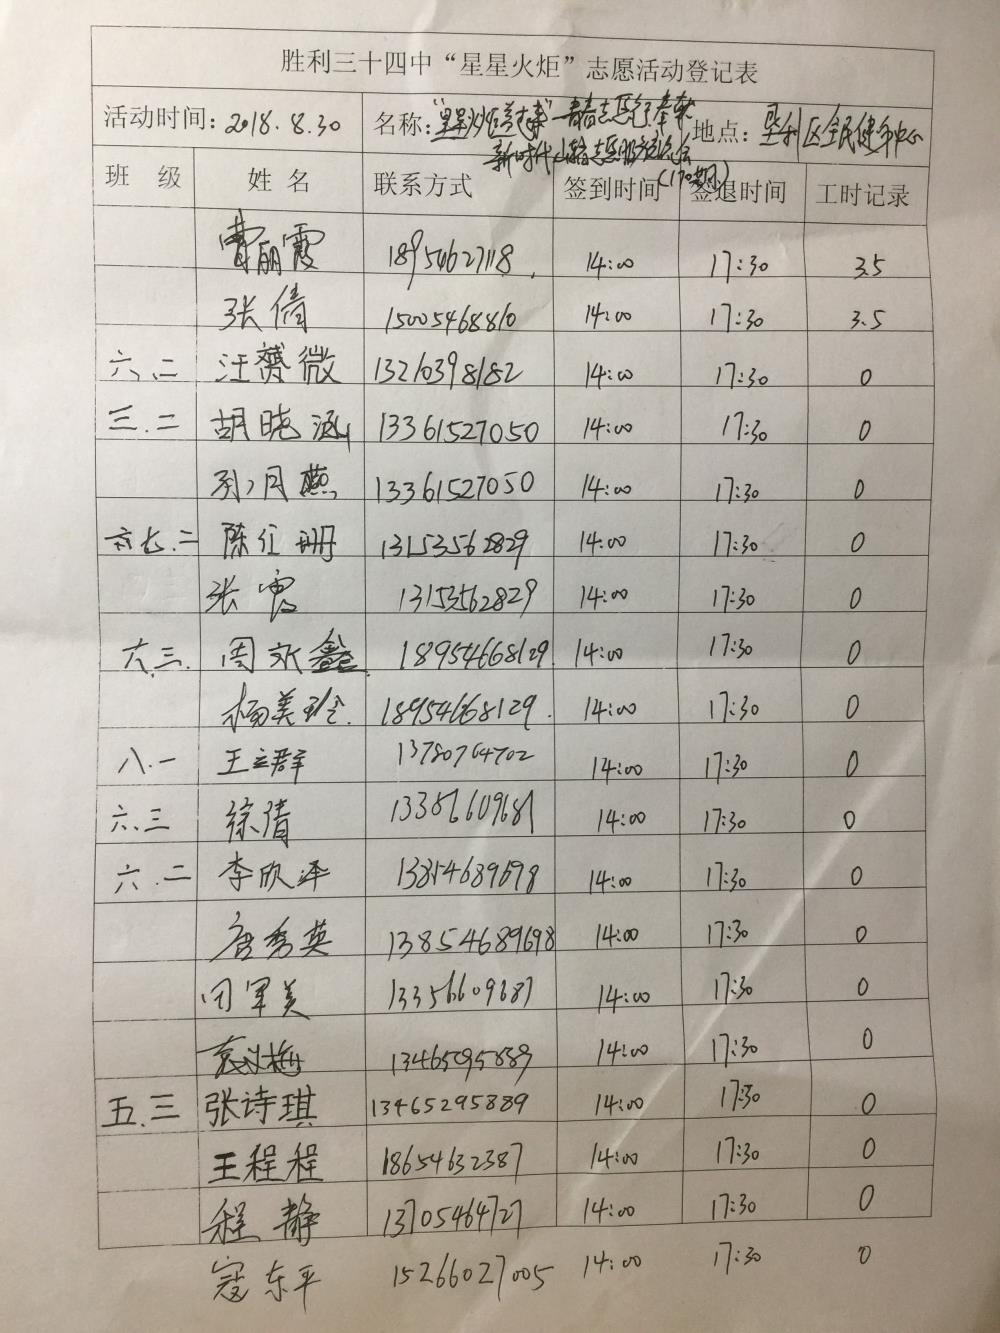 胜利三十四中“星星火炬”志愿活动登记表
活动时间：2018.8.30 名称：“星星火炬 青春志愿 奉献 地点：垦利区全民健身中心
新时代 志愿服务
班 级 姓 名 联系方式 签到时间 签退时间 工时记录
曹丽霞 18954627118 14:00 17:30 3.5
张倩 15005468810 14:00 17:30 3.5
六、二 汪赟微 13210398182 14:00 17:30 0
三.二 胡晓涵 13361527050 14:00 17:30 0
孙月燕 13361527050 14:00 17:30 0
七.二 陈红珊 13153562829 14:00 17:30 0
张霞 13153562829 14:00 17:30 0
六.三. 周文鑫 18954668129. 14:00 17:30 0
杨美玲. 18954668129. 14:00 17:30 0
八.一 王立群 13780764702 14:00 17:30 0
六.三 徐倩 14:00 17:30 0
六.二 李欣泽 13854689698 14:00 17:30 0
唐秀英 13854689698 14:00 17:30 0
田军美 13356609687 14:00 17:30 0
14:00 17:30 0
五.三 张诗琪 13465295889 14:00 17:30 0
王程程 18654632387 14:00 17:30 0
程静 13705464727 14:00 17:30 0
寇东平 15266027005 14:00 17:30 0